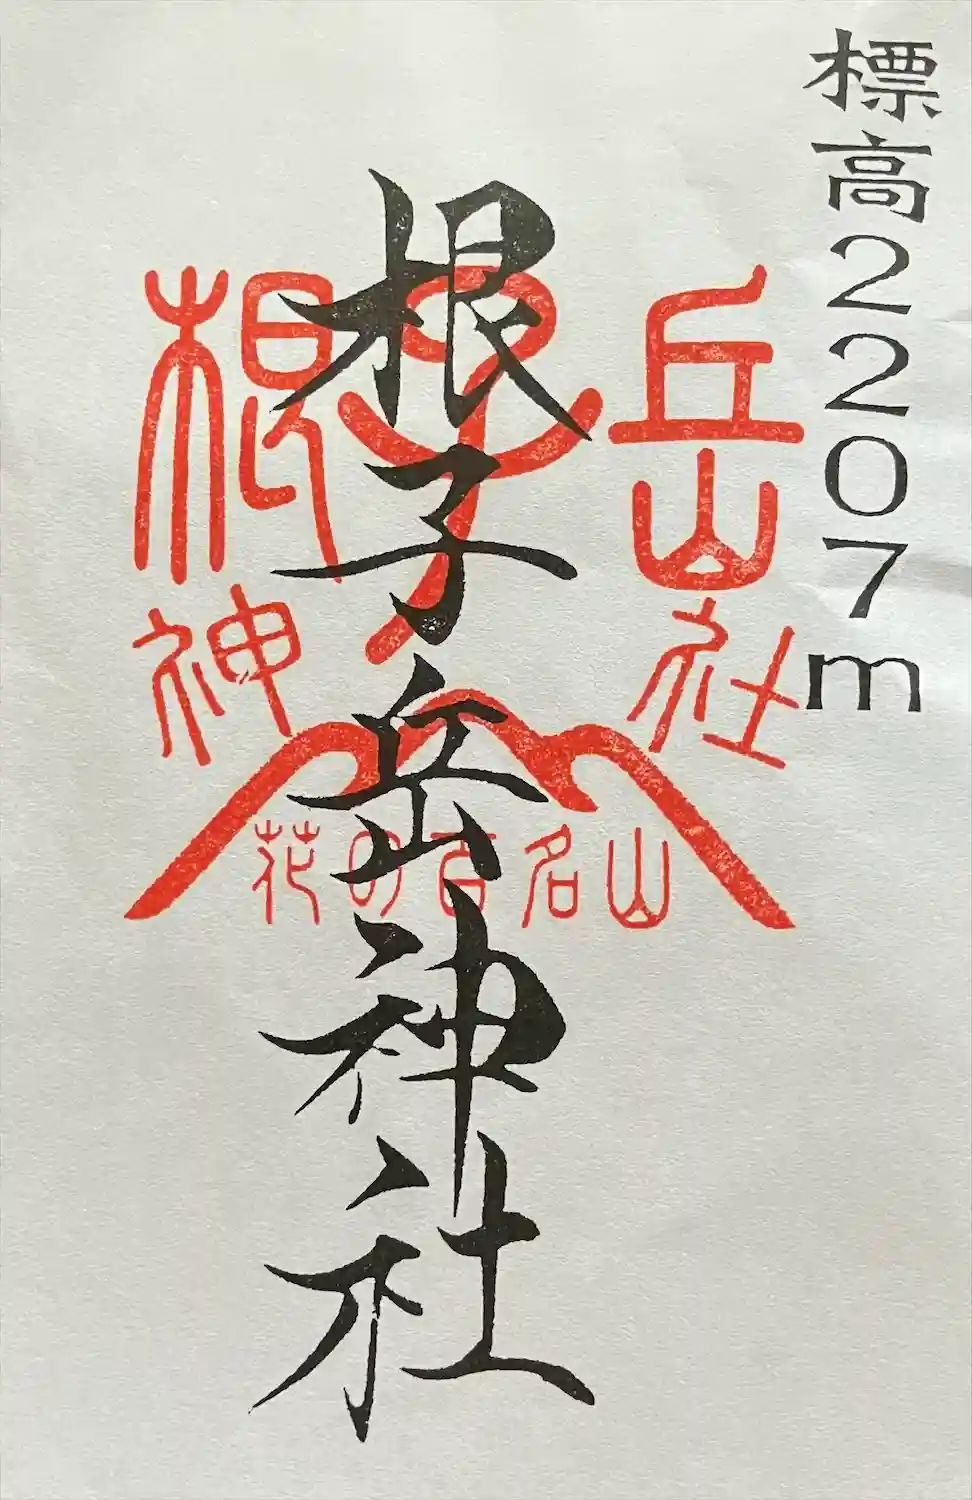 標高2207m
根子岳神社
根子岳
神社
花の百名山